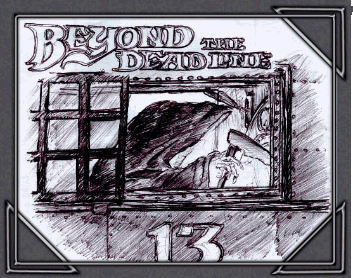 BEYOND THE
DEADLINE
13